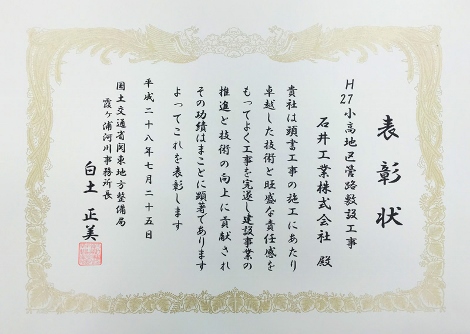 表彰状
H27小高地区管路敷設工事
石井工業株式会社 殿
貴社は頭書工事の施工にあたり
卓越した技術と旺盛な責任感を
もってよく工事を完遂し建設事業の
推進と技術の向上に貢献され
その功績はまことに顕著であります
よってこれを表彰します
平成二十八年七月二十五日
国土交通省関東地方整備局
霞ヶ浦河川事務所長
白土 正美